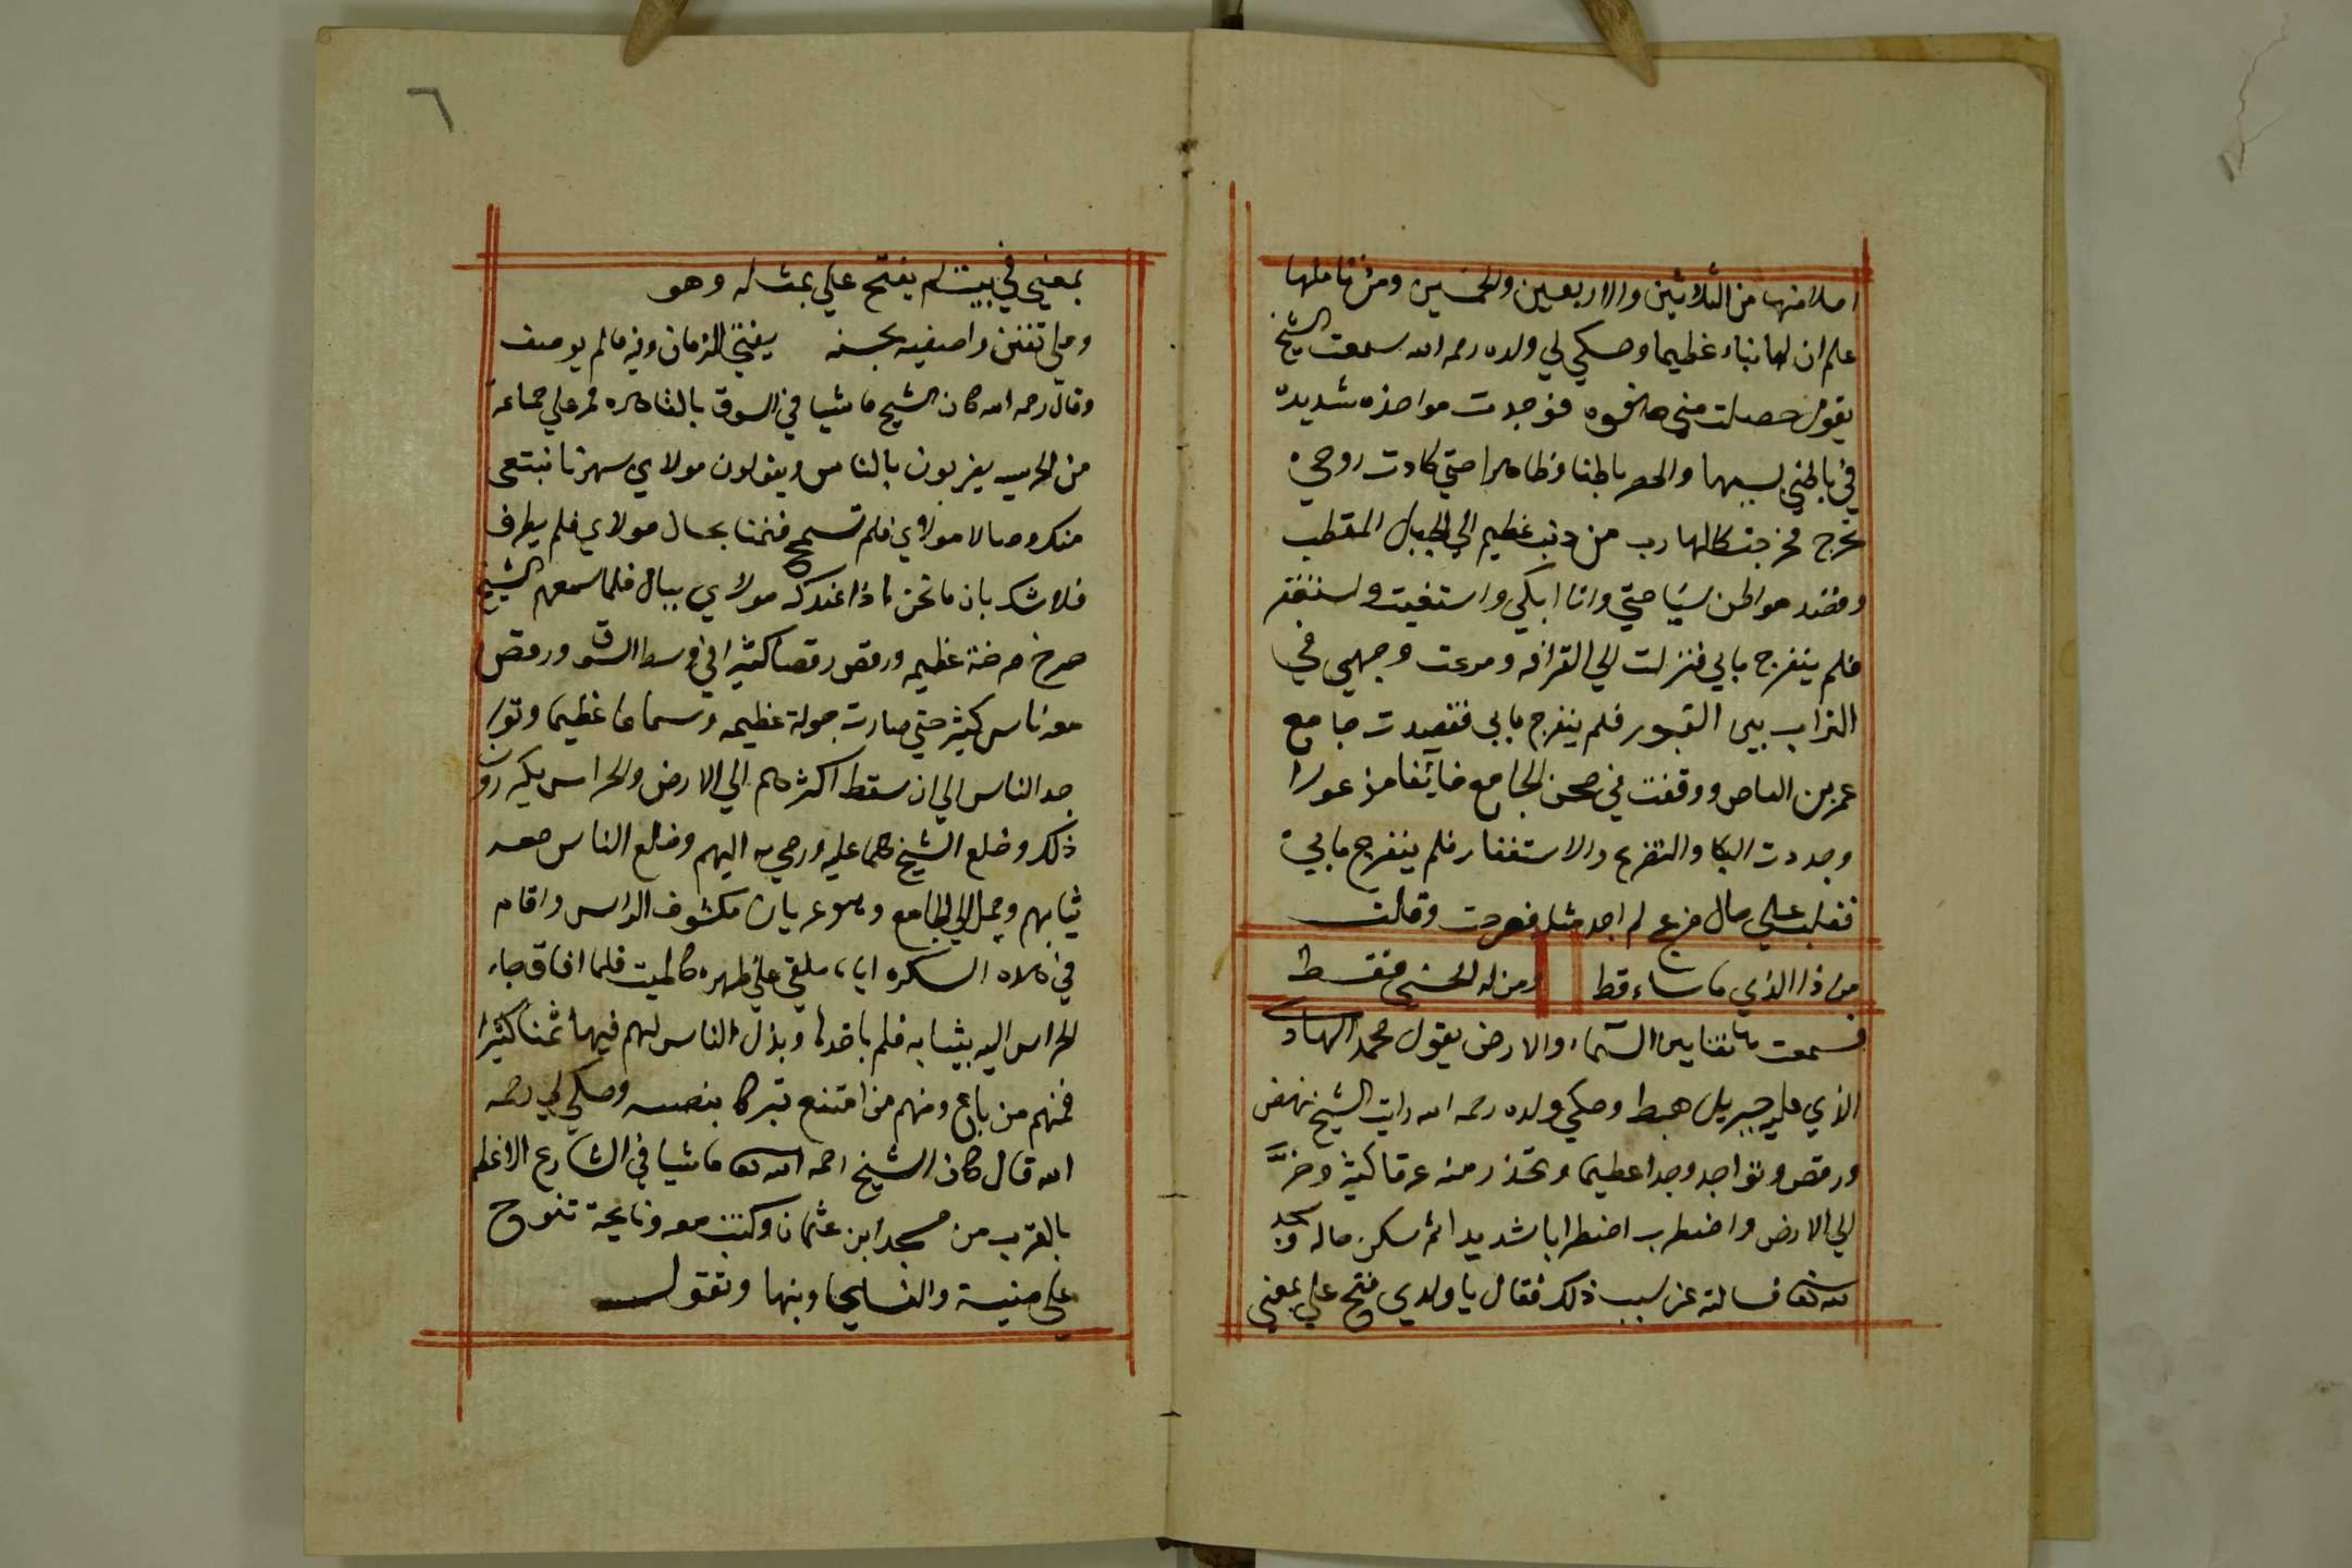 املا منها من الثلاثين والاربعين والخمسين ومن تاملها
علم ان لها نباء عظيما وحكي لي ولده رحمه الله سمعت الشيخ
يقول حصلت مني هفوه فوجدت مواخذه شديده
في باطني بسببها وانحصر باطنا وظاهرا حتي كادت روحي
تخرج فخرجت كالهارب من ذنب عظيم الي الجبل المقطب
وقصد مواطن سياحتي وانا ابكي واستغيث واستغفر
فلم ينفرج مابي فنزلت الي القرافه ومرغت وجهي في
التراب بين القبور فلم ينفرج مابي فقصدت جامع
عمر بن العاص ووقفت في صحن الجامع خايفا مذعورا
وجددت البكا والتضرع والاستغفار فلم ينفرج مابي
فغلب علي حال مزعج لم اجد مثله فصرخت وقلت
من ذا الذي ما ساء قط ومن له الحسني فقط
فسمعت هاتفا بين السماء والارض يقول محمد الهادي
الذي عليه جبريل هبط وحكي ولده رحمه الله رايت الشيخ نهض
ورقص وتواجد وجدا عظيما وتحذر منه عرقا كثيرا وخر
الي الارض واضطرب اضطرابا شديدا ثم سكن حاله وسجد
لله تعا فسالته عن سبب ذلك فقال يا ولدي فتح علي بمعني
٦
بمعني في بيت لم يفتح علي بمثله وهو
وعلي تفنن واصفيه بحسنه يفني الزمان وفيه مالم يوصف
وقال رحمه الله كان الشيخ ماشيا في السوق بالقاهره فمر علي جماعه
من الحرسيه يضربون بالناقوس ويقولون مولاي سهرنا نبتغي
منك وصالا مولاي فلم تسمح فنمنا بحال مولاي فلم يطرف
فلاشك بان ما نحن اذا عندك مولاي ببال فلما سمعهم الشيخ
صرخ صرخة عظيمه ورقص رقصا كثيرا في وسط السوق ورقص
معه ناس كثير حتي صارت جولة عظيمه وسماعا عظيما وتوا
جد الناس الي ان سقط اكثرهم الي الارض والحراس يكررون
ذلك وخلع الشيخ كلما عليه ورمي به اليهم وخلع الناس معه
ثيابهم وحمل الي الجامع وهو عريان مكشوف الراس واقام
في هذه السكره اياما ملقي علي ظهره كالميت فلما افاق جاء
الحراس اليه بثيابه فلم ياخذها وبذل الناس لهم فيها ثمنا كثيرا
فمنهم من باع ومنهم من امتنع تبركا بنصيبه وحكي لي رحمه
الله قال كان الشيخ رحمه الله تعا ماشيا في الشارع الاعظم
بالقرب من مسجد ابن عثمان وكنت معه ونايحة تنوح
علي ميتة والنسا يجاوبنها وتقول